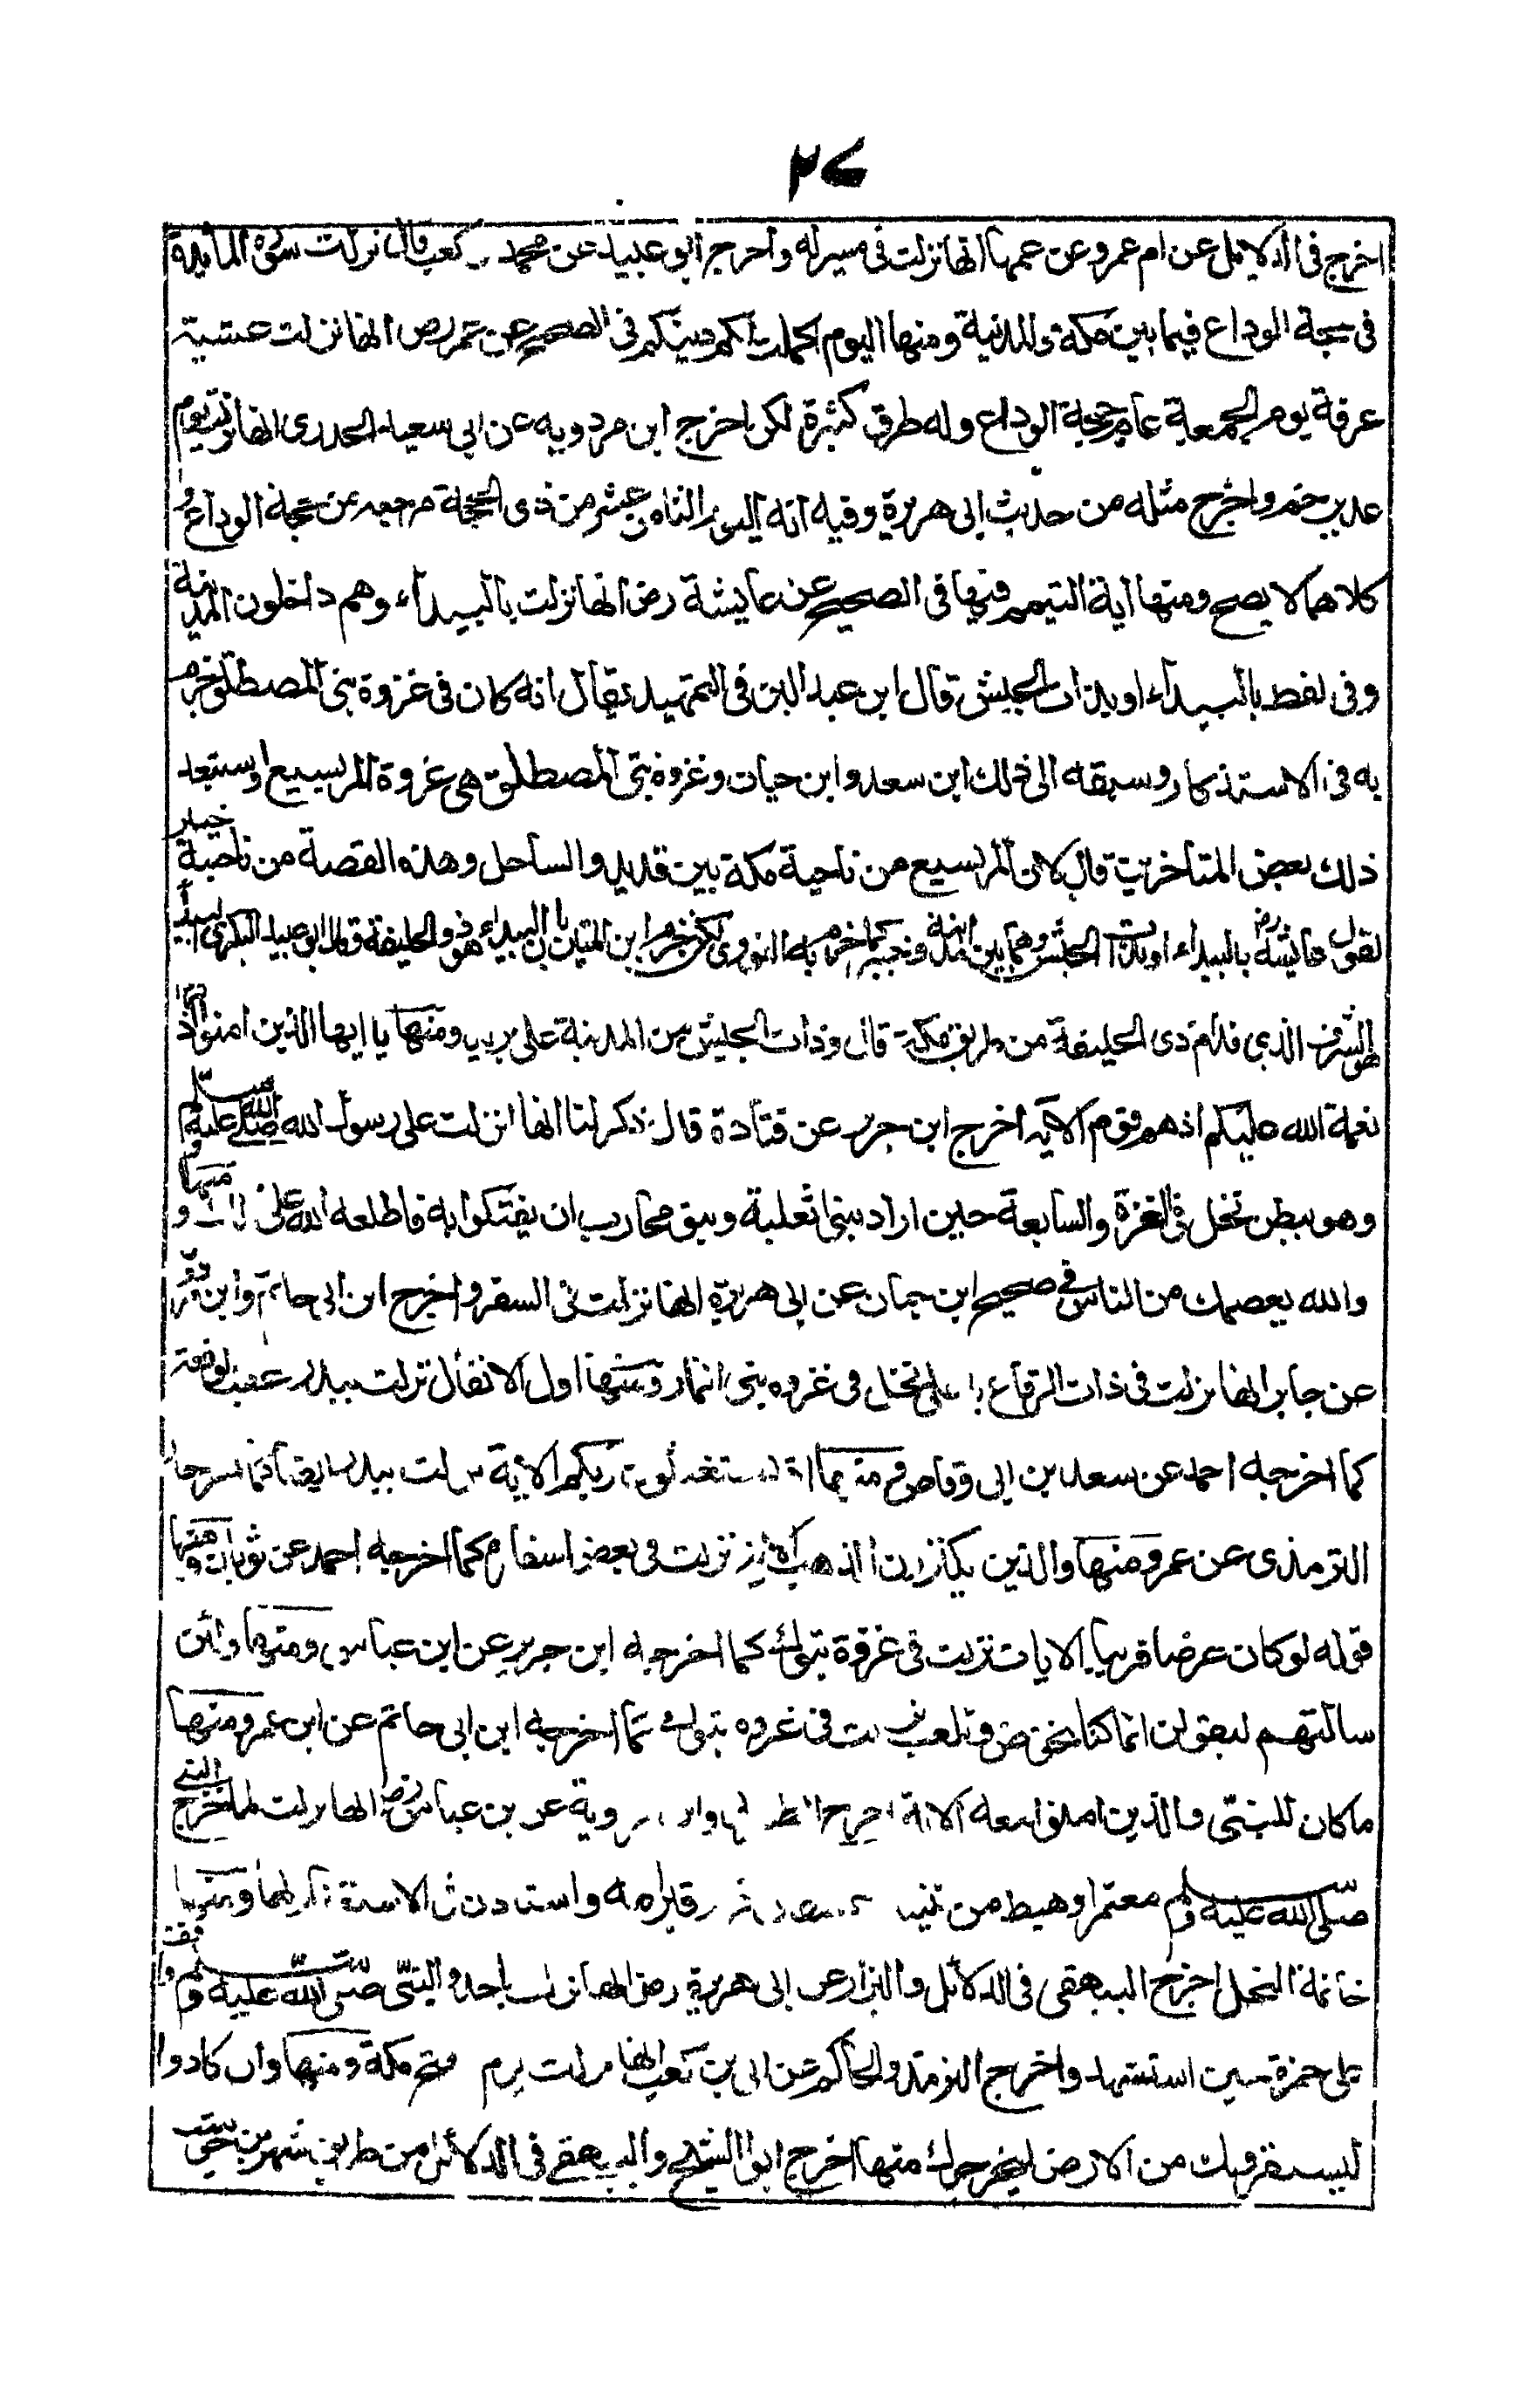 ٢٧
اخرج فى الدلايل عن ام عمرو عن عمها انها نزلت فى مسير له واخرج ابو عبيد عن محمد بن كعب قال نزلت سورة المائدة
فى حجة الوداع فيما بين مكة والمدنية ومنها اليوم اكملت لكم دينكم فى الصحيح عن عمر رض انها نزلت عشية
عرفة يوم الجمعة عام حجة الوداع وله طرق كثيرة لكن اخرج ابن مردويه عن ابى سعيد الخدرى انها نزلت يوم
غدير خم واخرج مثله من حديث ابى هريرة وفيه انه اليوم الثامن عشر من ذى الحجة مرجعه من حجة الوداع و
كلاهما لا يصح ومنها اية التيمم فيها فى الصحيح عن عايشة رض انها نزلت بالبيداء وهم داخلون المدينة
وفى لفظ بالبيداء او بذات الجيش قال ابن عبد البر فى التمهيد يقال انه كان فى غزوة بنى المصطلق وجزم
به فى الاستذكار وسبقه الى ذلك ابن سعد وابن حبان وغزوة بنى المصطلق هى غزوة المريسيع واستبعد
ذلك بعض المتأخرين قال لان المريسيع من ناحية مكة بين قديد والساحل وهذه القصة من ناحية خيبر
لقول عايشة رض بالبيداء او بذات الجيش وهما بين المدينة وخيبر كما جزم به النووى لكن جزم ابن التين بان البيداء هو ذو الحليفة وقال ابو عبيد البكرى البيداء
هو الشرف الذى قدام ذى الحليفة من طريق مكة قال وذات الجيش من المدينة على بريد ومنها يا ايها الذين امنوا اذكروا
نعمة الله عليكم اذ هم قوم الاية اخرج ابن جرير عن قتادة قال ذكر لنا انها انزلت على رسول الله صلى الله عليه وسلم
وهو ببطن نخل فى الغزوة السابعة حين اراد بنى ثعلبة وبنو محارب ان يفتكوا به فاطلعه الله على ذلك ومنها
والله يعصمك من الناس فى صحيح ابن حبان عن ابى هريرة انها نزلت فى السفر واخرج ابن ابى حاتم وابن مردويه
عن جابر انها نزلت فى ذات الرقاع باعلى نخل فى غزوه بنى انمار ومنها اول الانفال نزلت ببدر عقب الوقعة
كما اخرجه احمد عن سعد بن ابى وقاص ومنها اذ تستغيثون ربكم الاية نزلت ببدر ايضا كما اخرجه
الترمذى عن عمر ومنها والذين يكنزون الذهب الاية نزلت فى بعض اسفاره كما اخرجه احمد عن ثوبان ومنها
قوله لو كان عرضا قريبا الايات نزلت فى غزوة تبوك كما اخرجه ابن جرير عن ابن عباس ومنها ولئن
سالتهم ليقولن انما كنا نخوض ونلعب نزلت فى غزوه تبوك كما اخرجه ابن ابى حاتم عن ابن عمر ومنها
ما كان للنبى والذين امنوا معه الاية اخرج الطبرانى وابن مردويه عن بن عباس رض انها نزلت لما خرج النبى
صلى الله عليه وسلم معتمرا وهبط من ثنية عسفان فزار قبر امه واستاذن فى الاستغفار لها ومنها
خاتمة النحل اخرج البيهقى فى الدلائل والبزار عن ابى هريرة رض انها نزلت باحد والنبى صلى الله عليه وسلم واقف
على حمزة حين استشهد واخرج الترمذى والحاكم عن ابى بن كعب انها نزلت يوم فتح مكة ومنها وان كادوا
ليستفزونك من الارض ليخرجوك منها اخرج ابو الشيخ والبيهقى فى الدلائل من طريق شهر بن حوشب